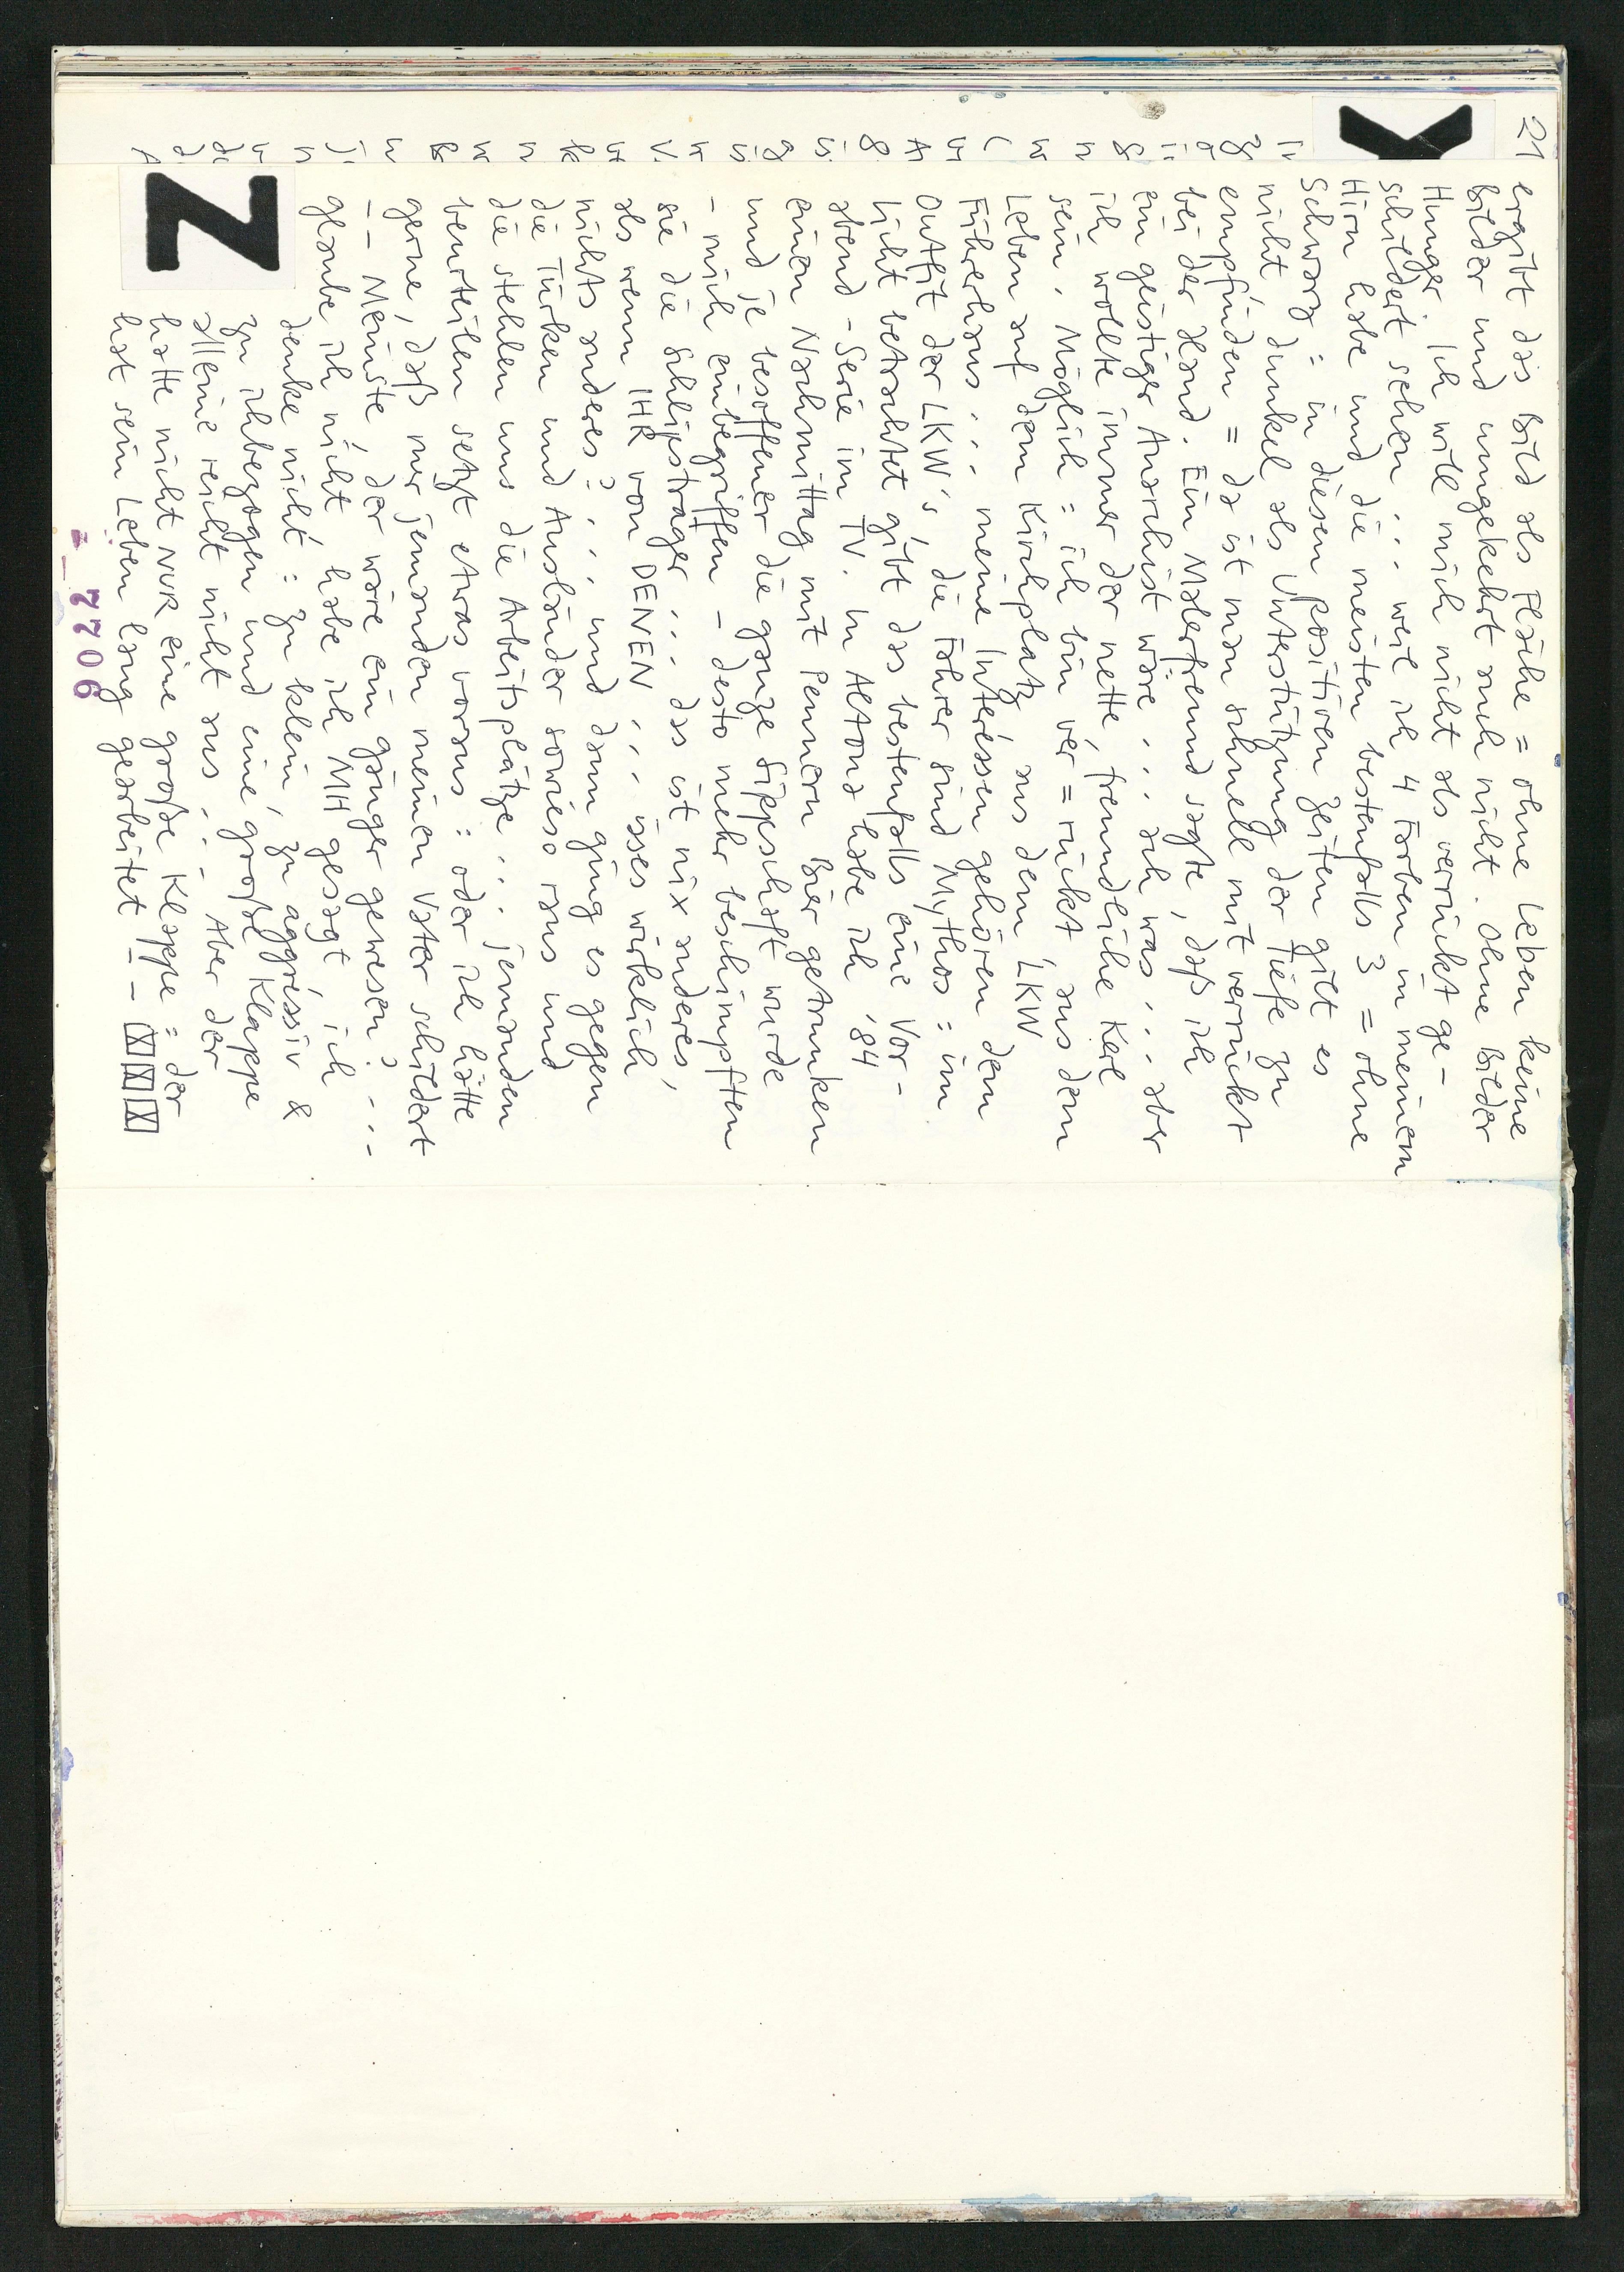 21
ergibt das Bild als Fläche = ohne Leben keine
Bilder und umgekehrt auch nicht. Ohne Bilder
Hunger. Ich will mich nicht als verrückt ge-
schildert sehen ... weil ich 4 Farben in meinem
Hirn habe und die meisten bestenfalls 3 = ohne
Schwarz : in diesen positiven Zeiten gilt es
nicht, dunkel als Unterstützung der Tiefe zu
empfinden = da ist man schnell mit verrückt
bei der Hand. Ein Malerfreund sagte, daß ich
ein geistiger Anarchist wäre ... ach was ... aber
ich wollte immer der nette, freundliche Kerl
sein. Möglich : ich bin ver = rückt aus dem
Leben auf dem Kirchplatz aus dem LKW
Führerhaus ... meine Interessen gehören dem
Outfit der LKW's, die Fahrer sind Mythos : im
Licht betrachtet gibt das bestenfalls eine Vor-
abend - Serie im TV. In Altona habe ich '84
einen Nachmittag mit Pennern Bier getrunken
und je besoffener die ganze Sippschaft wurde
- mich einbegriffen - desto mehr beschimpften
sie die Schlipsträger ... das ist nix anderes,
als wenn IHR von DENEN ... isses wirklich
nichts anderes? ... und dann ging es gegen
die Türken und Ausländer sowieso raus und
die stehlen uns die Arbeitsplätze ... jemanden
beurteilen setzt etwas voraus : oder ich hätte
gerne, daß mir jemanden meinen Vater schildert
-- Meinste, der wäre ein gänger gewesen? ---
glaube ich nicht, habe ich MH gesagt, ich
denke nicht : zu klein, zu aggressiv &
zu ichbezogen und eine große Klappe
alleine reicht nicht aus ... Aber der
hatte nicht NUR eine große Klappe : der
hat sein Leben lang gearbeitet --
Z
7706